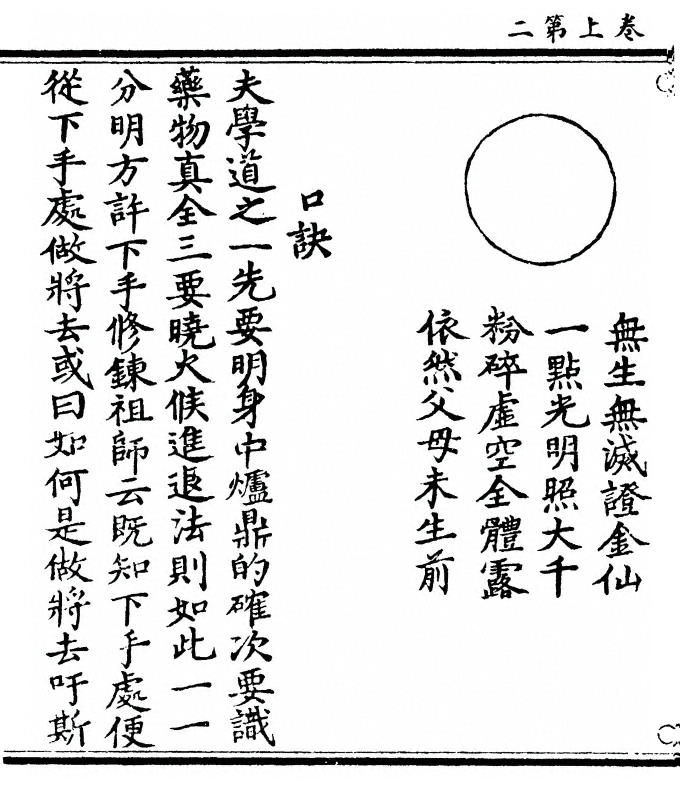 卷上第二
無生無滅證金仙
一點光明照大千
粉碎虛空全體露
依然父母未生前
口訣
夫學道之一先要明身中爐鼎的確次要識
藥物真全三要曉火候進退法則如此一一
分明方許下手修鍊祖師云既知下手處便
從下手處做將去或曰如何是做將去吁斯